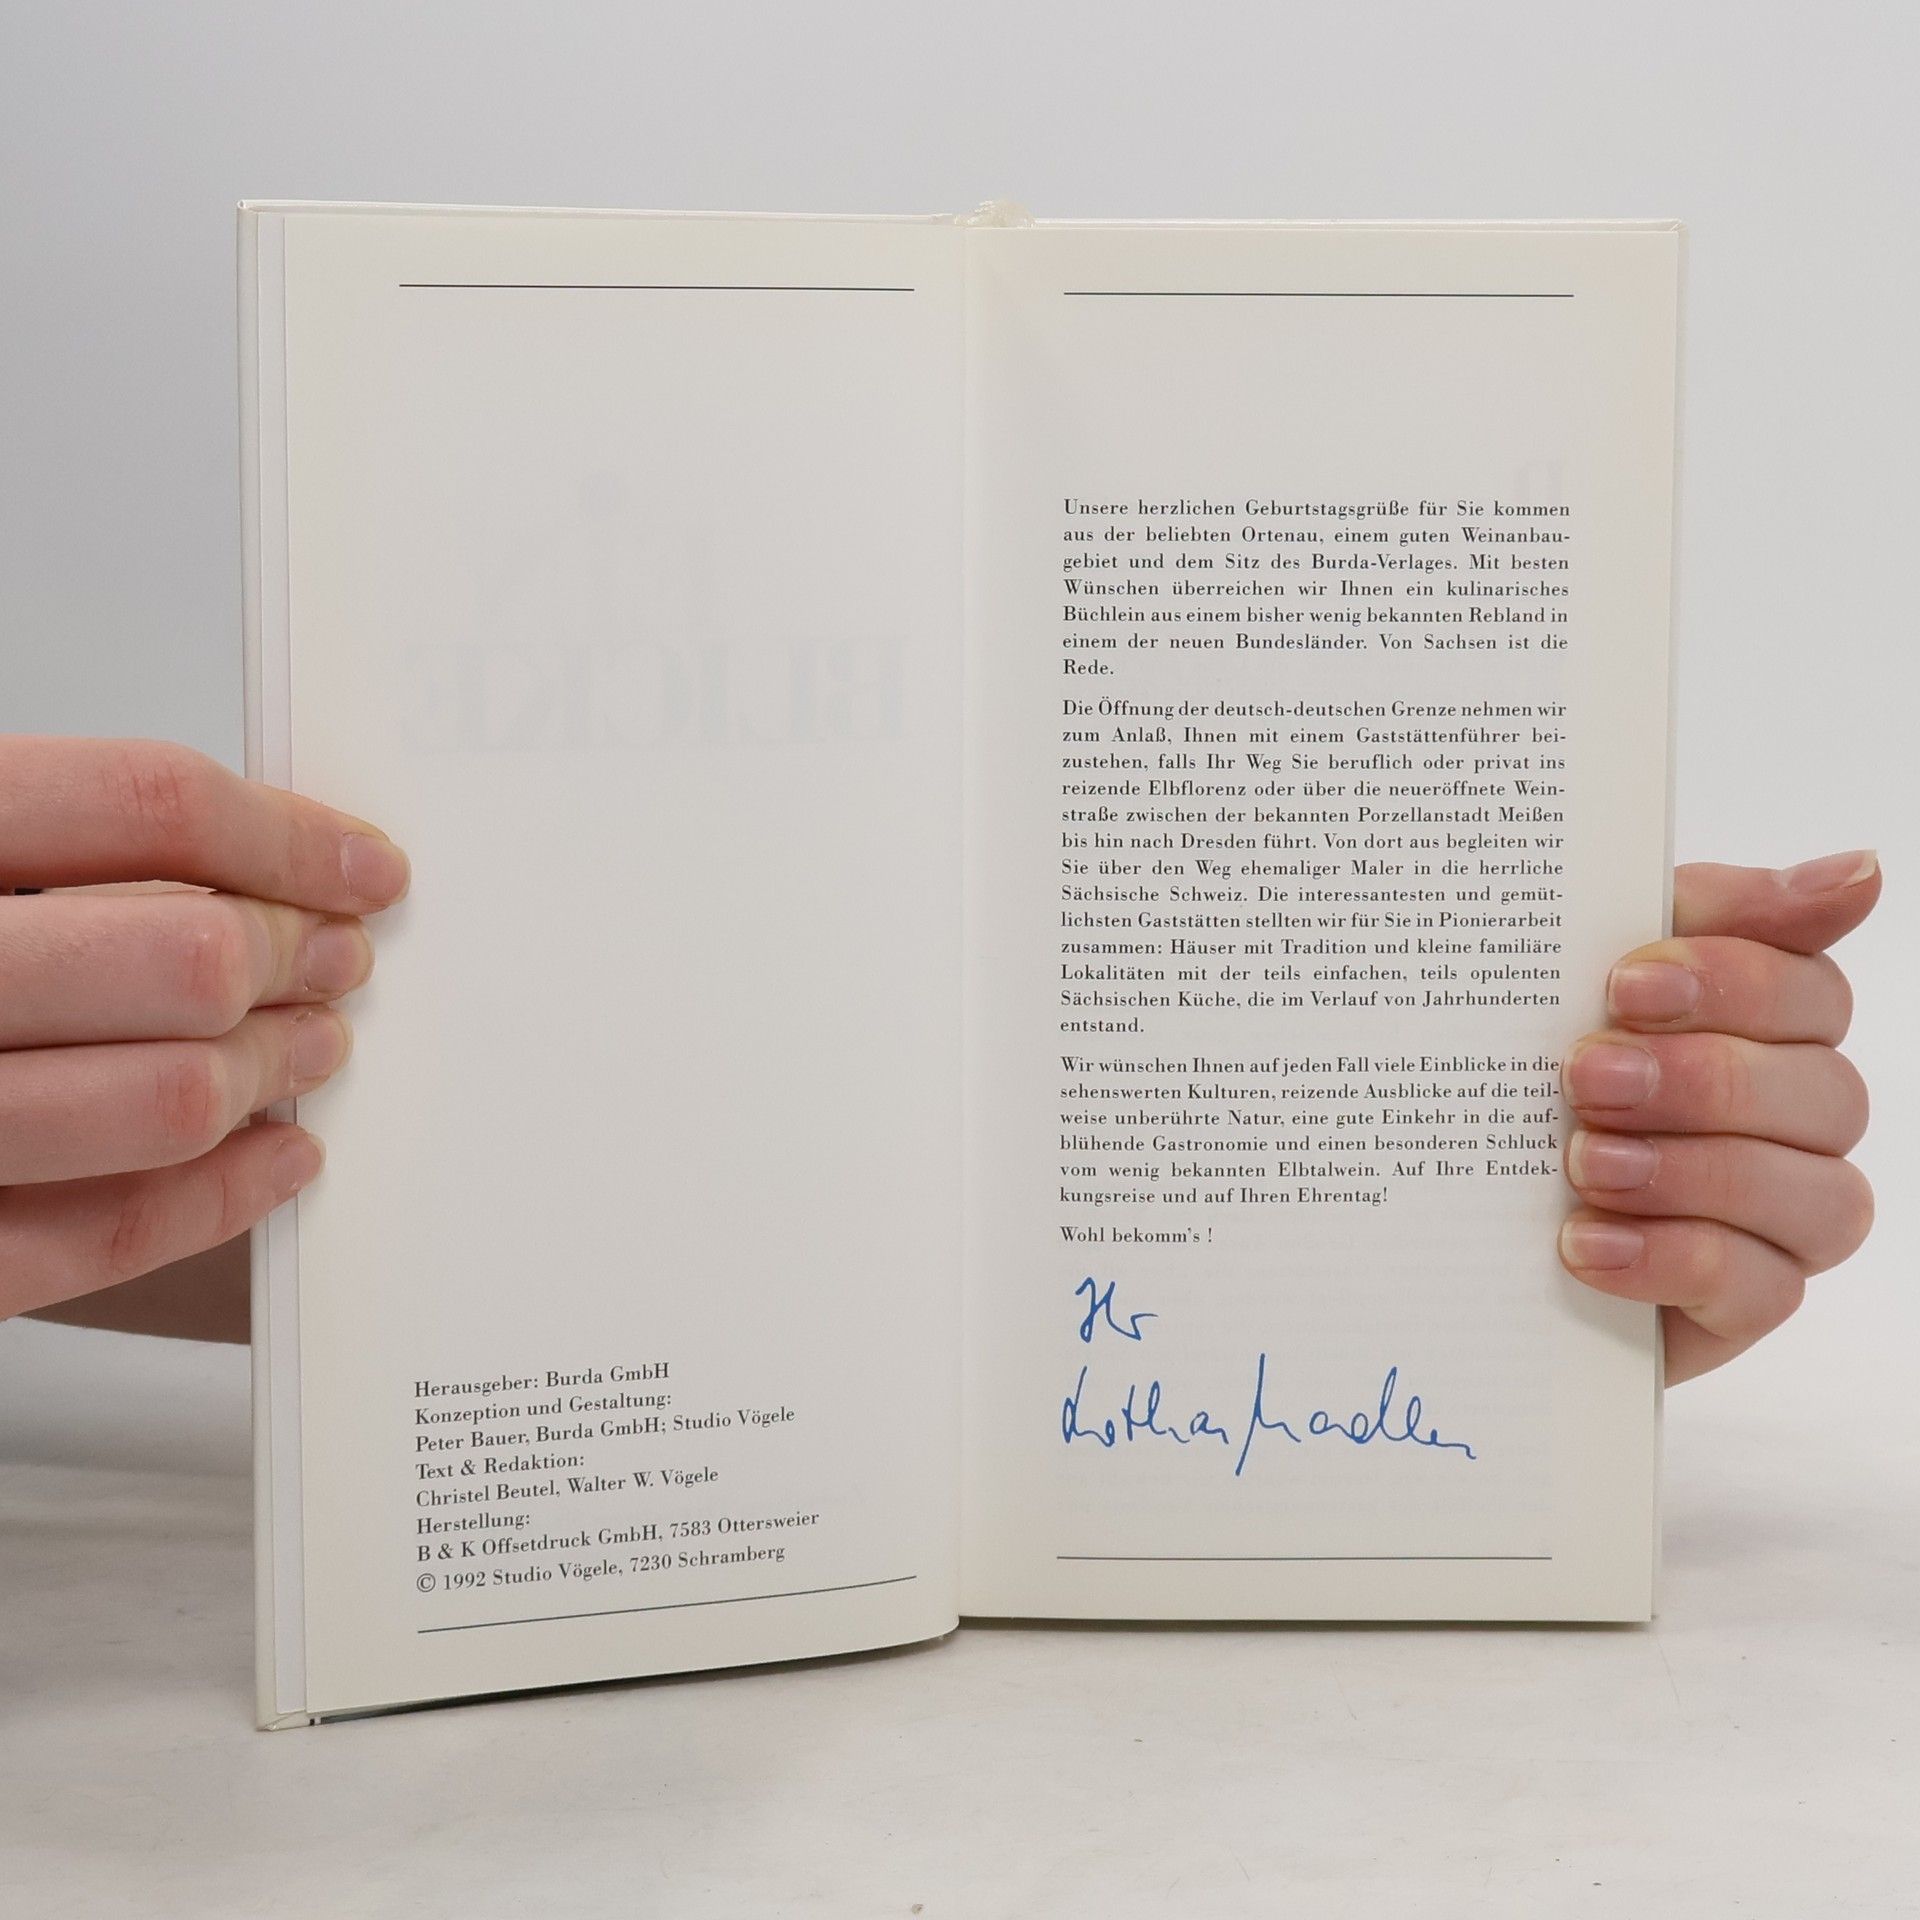 Herausgeber: Burda GmbH
Konzeption und Gestaltung:
Peter Bauer, Burda GmbH; Studio Vögele
Text & Redaktion:
Christel Beutel, Walter W. Vögele
Herstellung:
B & K Offsetdruck GmbH, 7583 Ottersweier
© 1992 Studio Vögele, 7230 Schramberg
Unsere herzlichen Geburtstagsgrüße für Sie kommen
aus der beliebten Ortenau, einem guten Weinanbau-
gebiet und dem Sitz des Burda-Verlages. Mit besten
Wünschen überreichen wir Ihnen ein kulinarisches
Büchlein aus einem bisher wenig bekannten Rebland in
einem der neuen Bundesländer. Von Sachsen ist die
Rede.
Die Öffnung der deutsch-deutschen Grenze nehmen wir
zum Anlaß, Ihnen mit einem Gaststättenführer bei-
zustehen, falls Ihr Weg Sie beruflich oder privat ins
reizende Elbflorenz oder über die neueröffnete Wein-
straße zwischen der bekannten Porzellanstadt Meißen
bis hin nach Dresden führt. Von dort aus begleiten wir
Sie über den Weg ehemaliger Maler in die herrliche
Sächsische Schweiz. Die interessantesten und gemüt-
lichsten Gaststätten stellten wir für Sie in Pionierarbeit
zusammen: Häuser mit Tradition und kleine familiäre
Lokalitäten mit der teils einfachen, teils opulenten
Sächsischen Küche, die im Verlauf von Jahrhunderten
entstand.
Wir wünschen Ihnen auf jeden Fall viele Einblicke in die
sehenswerten Kulturen, reizende Ausblicke auf die teil-
weise unberührte Natur, eine gute Einkehr in die auf-
blühende Gastronomie und einen besonderen Schluck
vom wenig bekannten Elbtalwein. Auf Ihre Entdek-
kungsreise und auf Ihren Ehrentag!
Wohl bekomm's !
Ihr
Lothar